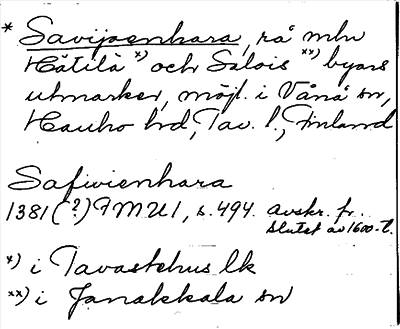 * Savijoenhara, rå mhn
Hätilä *) och Salois **) byars
utmarker, möjl. i Vånå sn,
Hauho hd, Tav. l., Finland
Safwienhara
1381 (?) FMU I, s. 494. avskr. fr.
slutet av 1600-t.
*) i Tavastehus lk
**) i Janakkala sn